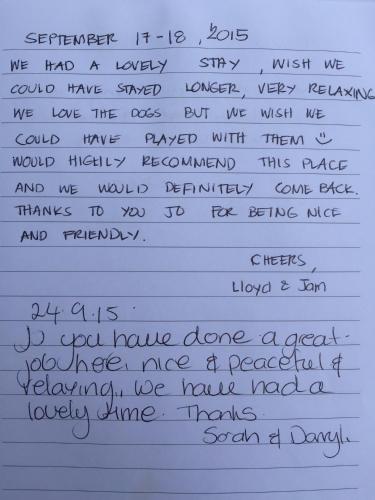 SEPTEMBER 17-18, 2015
WE HAD A LOVELY STAY, WISH WE
COULD HAVE STAYED LONGER, VERY RELAXING
WE LOVE THE DOGS BUT WE WISH WE
COULD HAVE PLAYED WITH THEM ☺
WOULD HIGHLY RECOMMEND THIS PLACE
AND WE WOULD DEFINITELY COME BACK.
THANKS TO YOU JO FOR BEING NICE
AND FRIENDLY.
CHEERS,
Lloyd & Jam
24.9.15.
Jo you have done a great
job here, nice & peaceful &
relaxing, We have had a
lovely time. Thanks.
Sarah & Darryl.